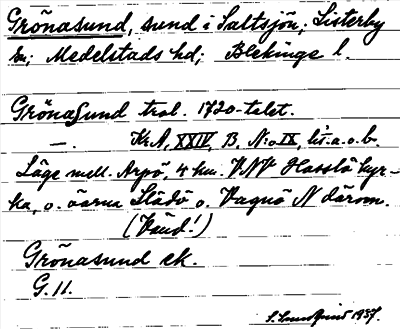 Grönasund, sund i Saltsjön; Listerby
sn; Medelstads hd; Blekinge l.
Grönasund trol. 1720-talet.
—. Kr. A, XXIV, B, N:o IX, lit. a. o. b.
Läge mell. Arpö, 4 km. VNV Hasslö kyr-
ka, o. öarna Slädö o. Vagnö N därom.
(Vänd!)
Grönasund ek.
G. 11.
1937.